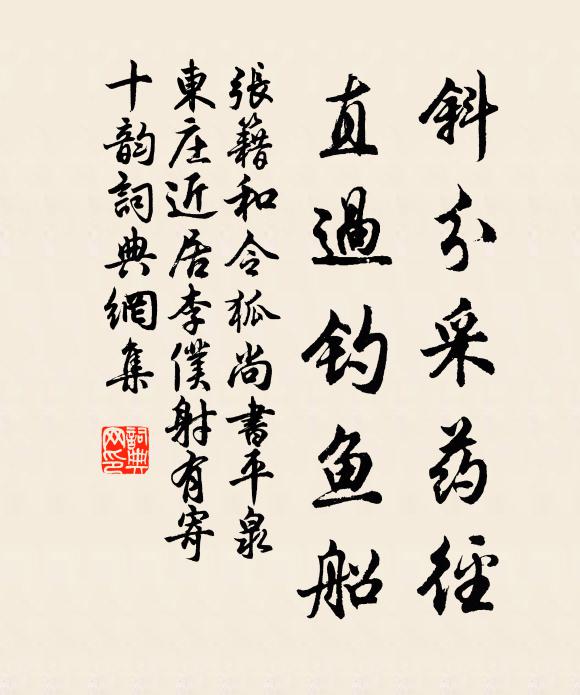 斜分采药徑
直過钓鱼船
張籍和令狐尚書平泉
東庄近居李僕射有寄
十韵詞典網集
詞典
网印